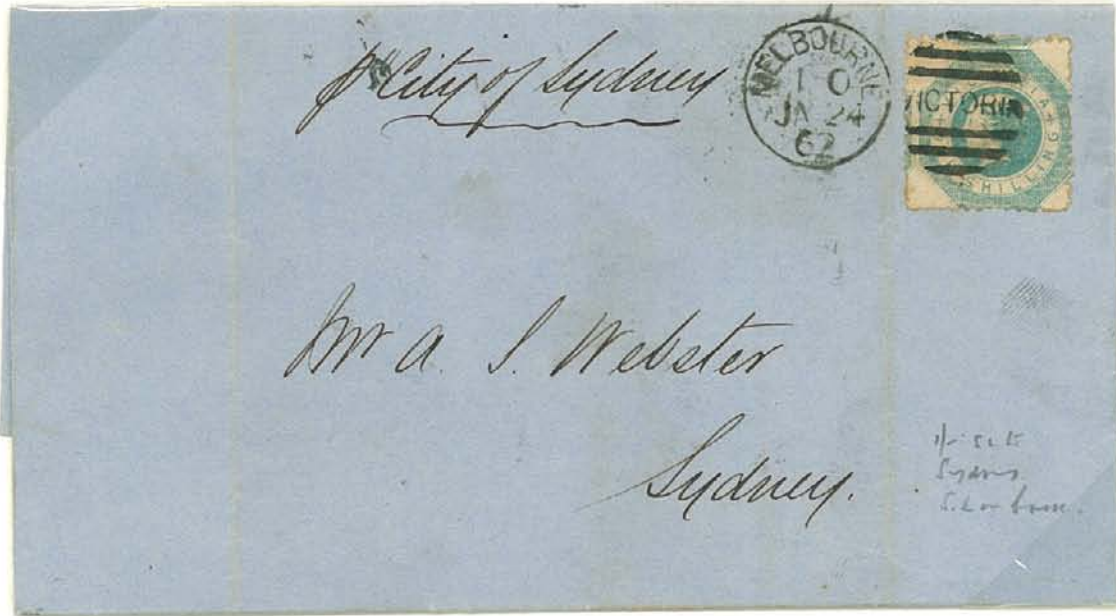 pr City of Sydney
MELBOURNE
1 O
JA 24
62
VICTORIA
SHILLING
Mr A. S. Webster
Sydney.
Sydney